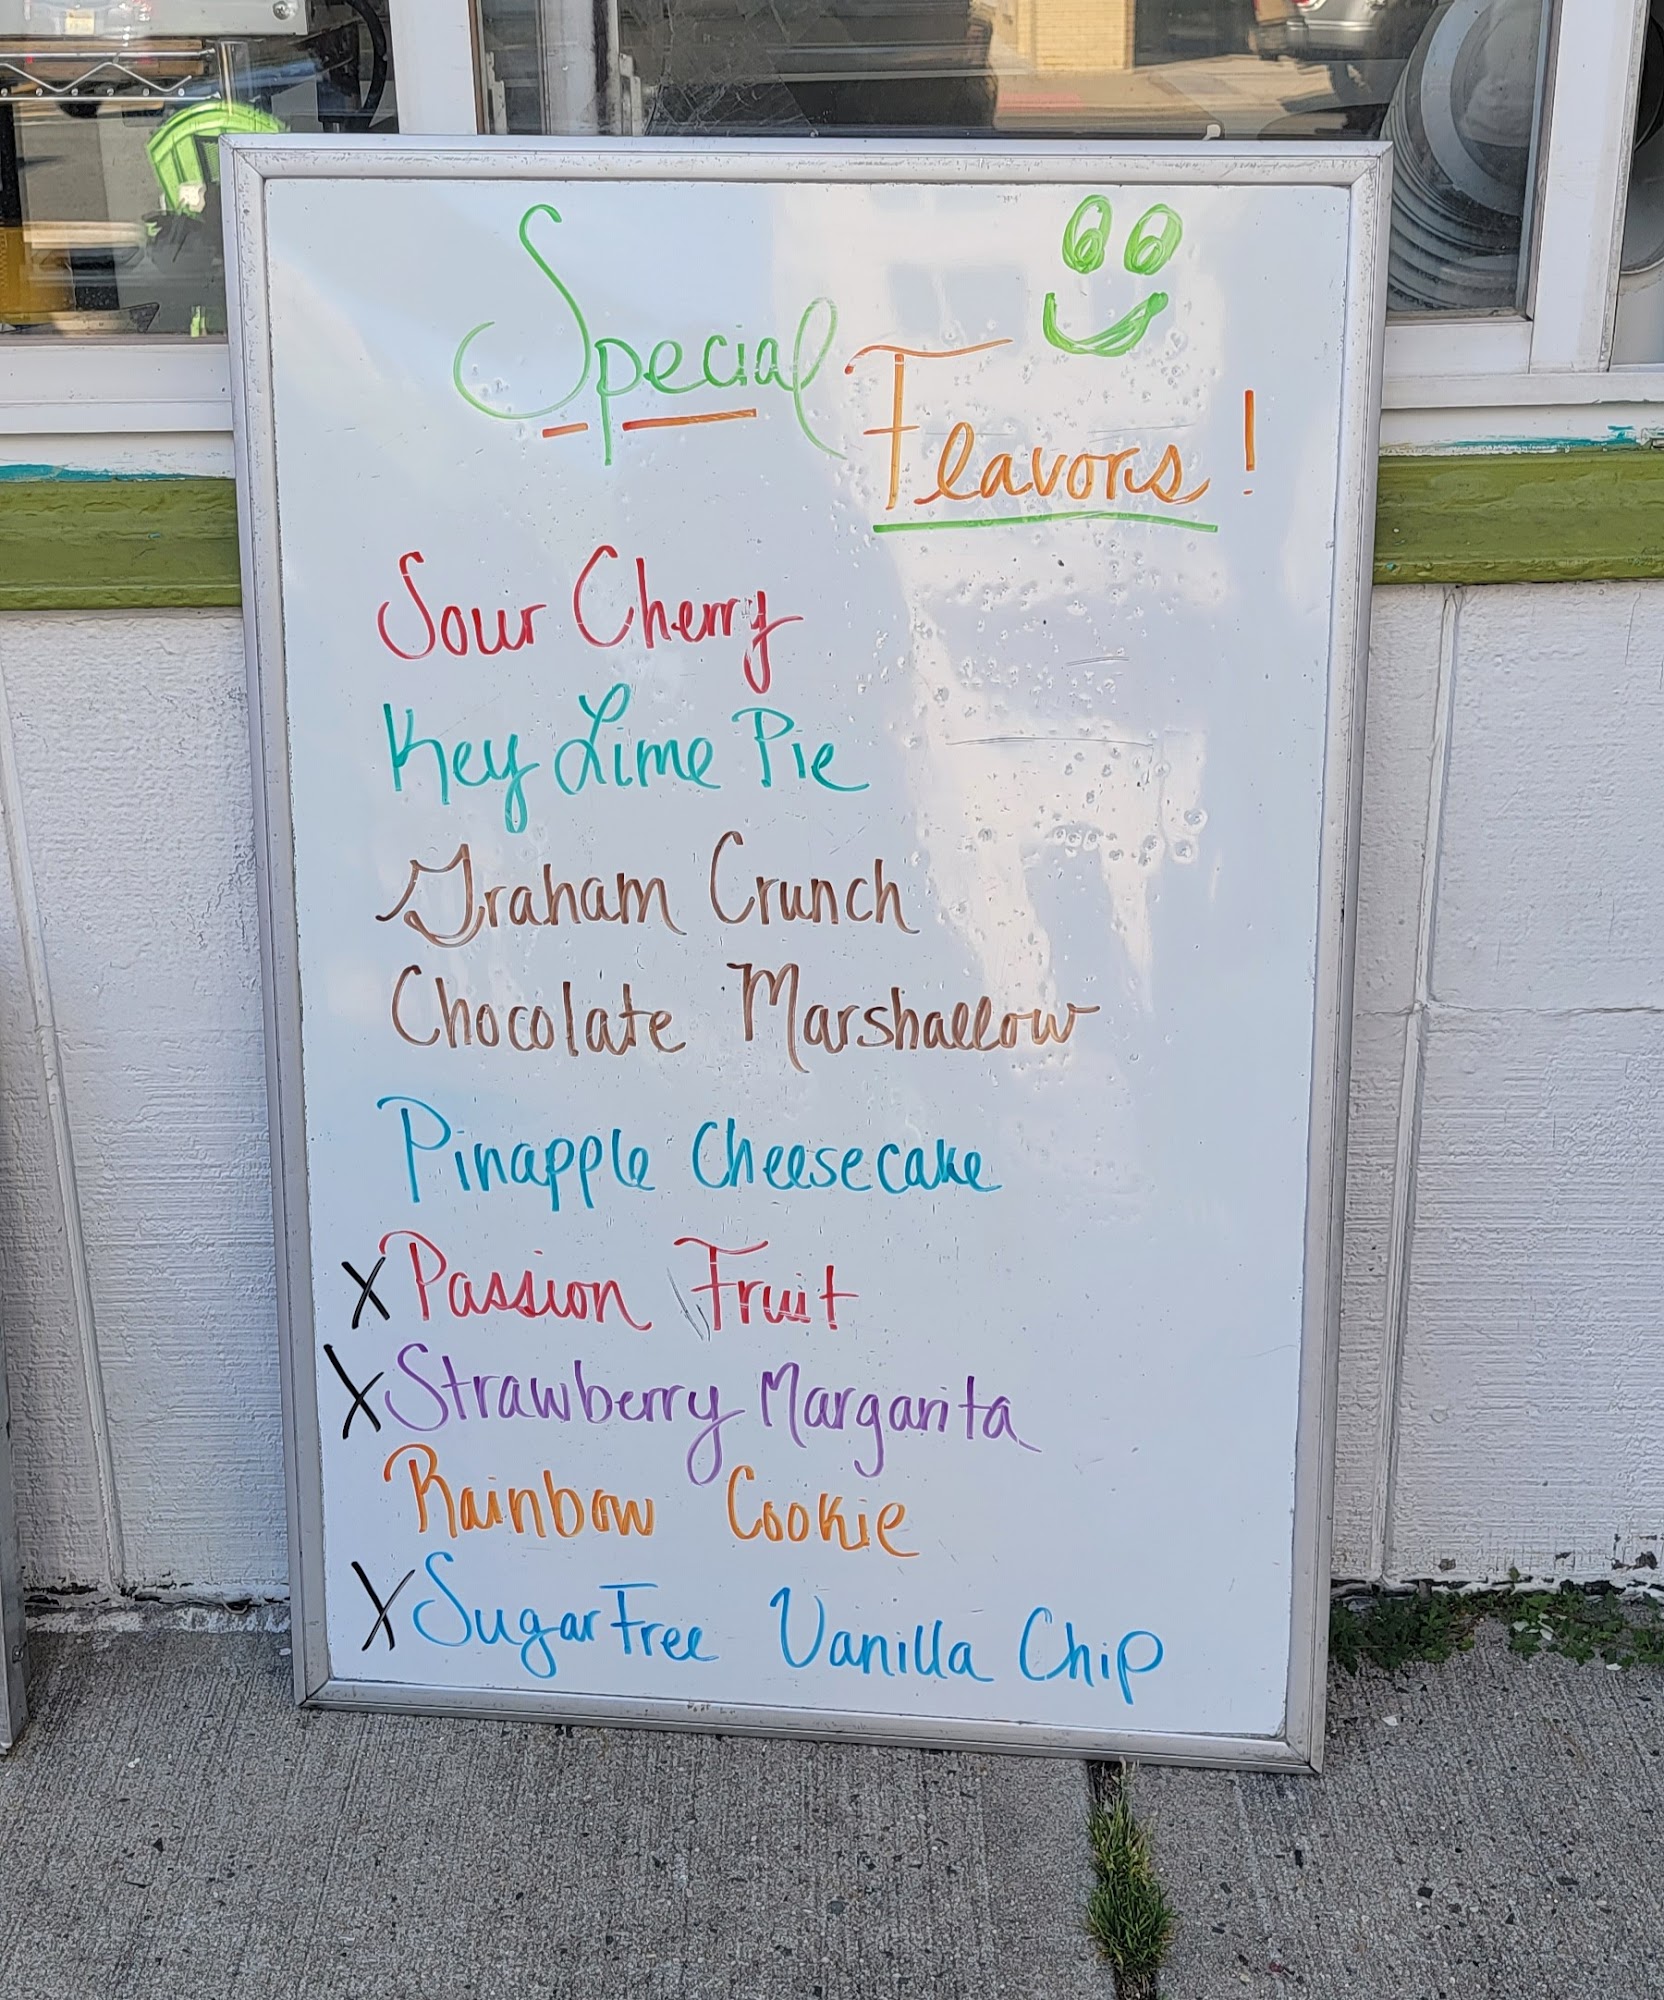 Special
Flavors!
Sour Cherry
Key Lime Pie
Graham Crunch
Chocolate Marshallow
Pinapple Cheesecake
X Passion Fruit
X Strawberry Margarita
Rainbow Cookie
X Sugar Free Vanilla Chip